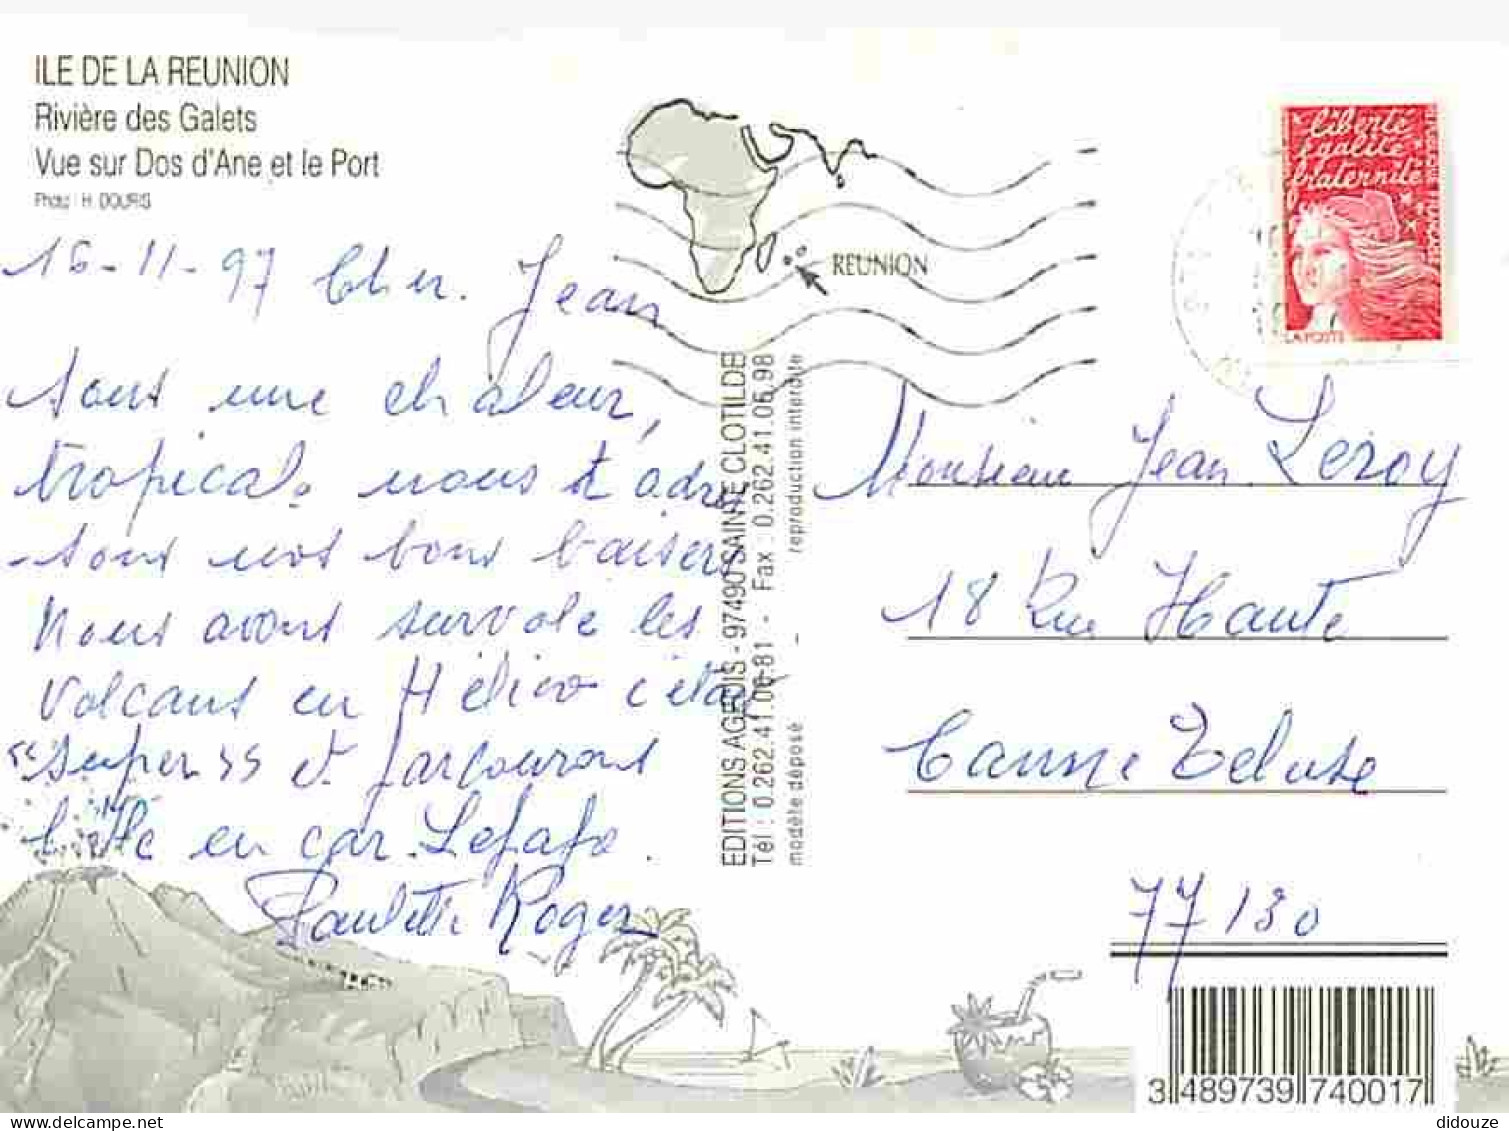 ILE DE LA REUNION
Rivière des Galets
Vue sur Dos d'Ane et le Port
Photo : H. DOURIS
16-11-97 Cher Jean
Sous une chaleur,
tropical. nous t'adres
-sons nos bons baisers
Nous avons survolé les
Volcans en Hélico c'était
"super" et parcourons
l'île en car.
Paulette Roger
REUNION
EDITIONS AGEDIS - 97490 SAINTE CLOTILDE
Tél : 0.262.41.06.81 - Fax : 0.262.41.06.98
modèle déposé - reproduction interdite
liberté
égalité
fraternité
LA POSTE
Monsieur Jean Leroy
18 Rue Haute
Canne Ecluse
77130
3 489739 740017
didouze